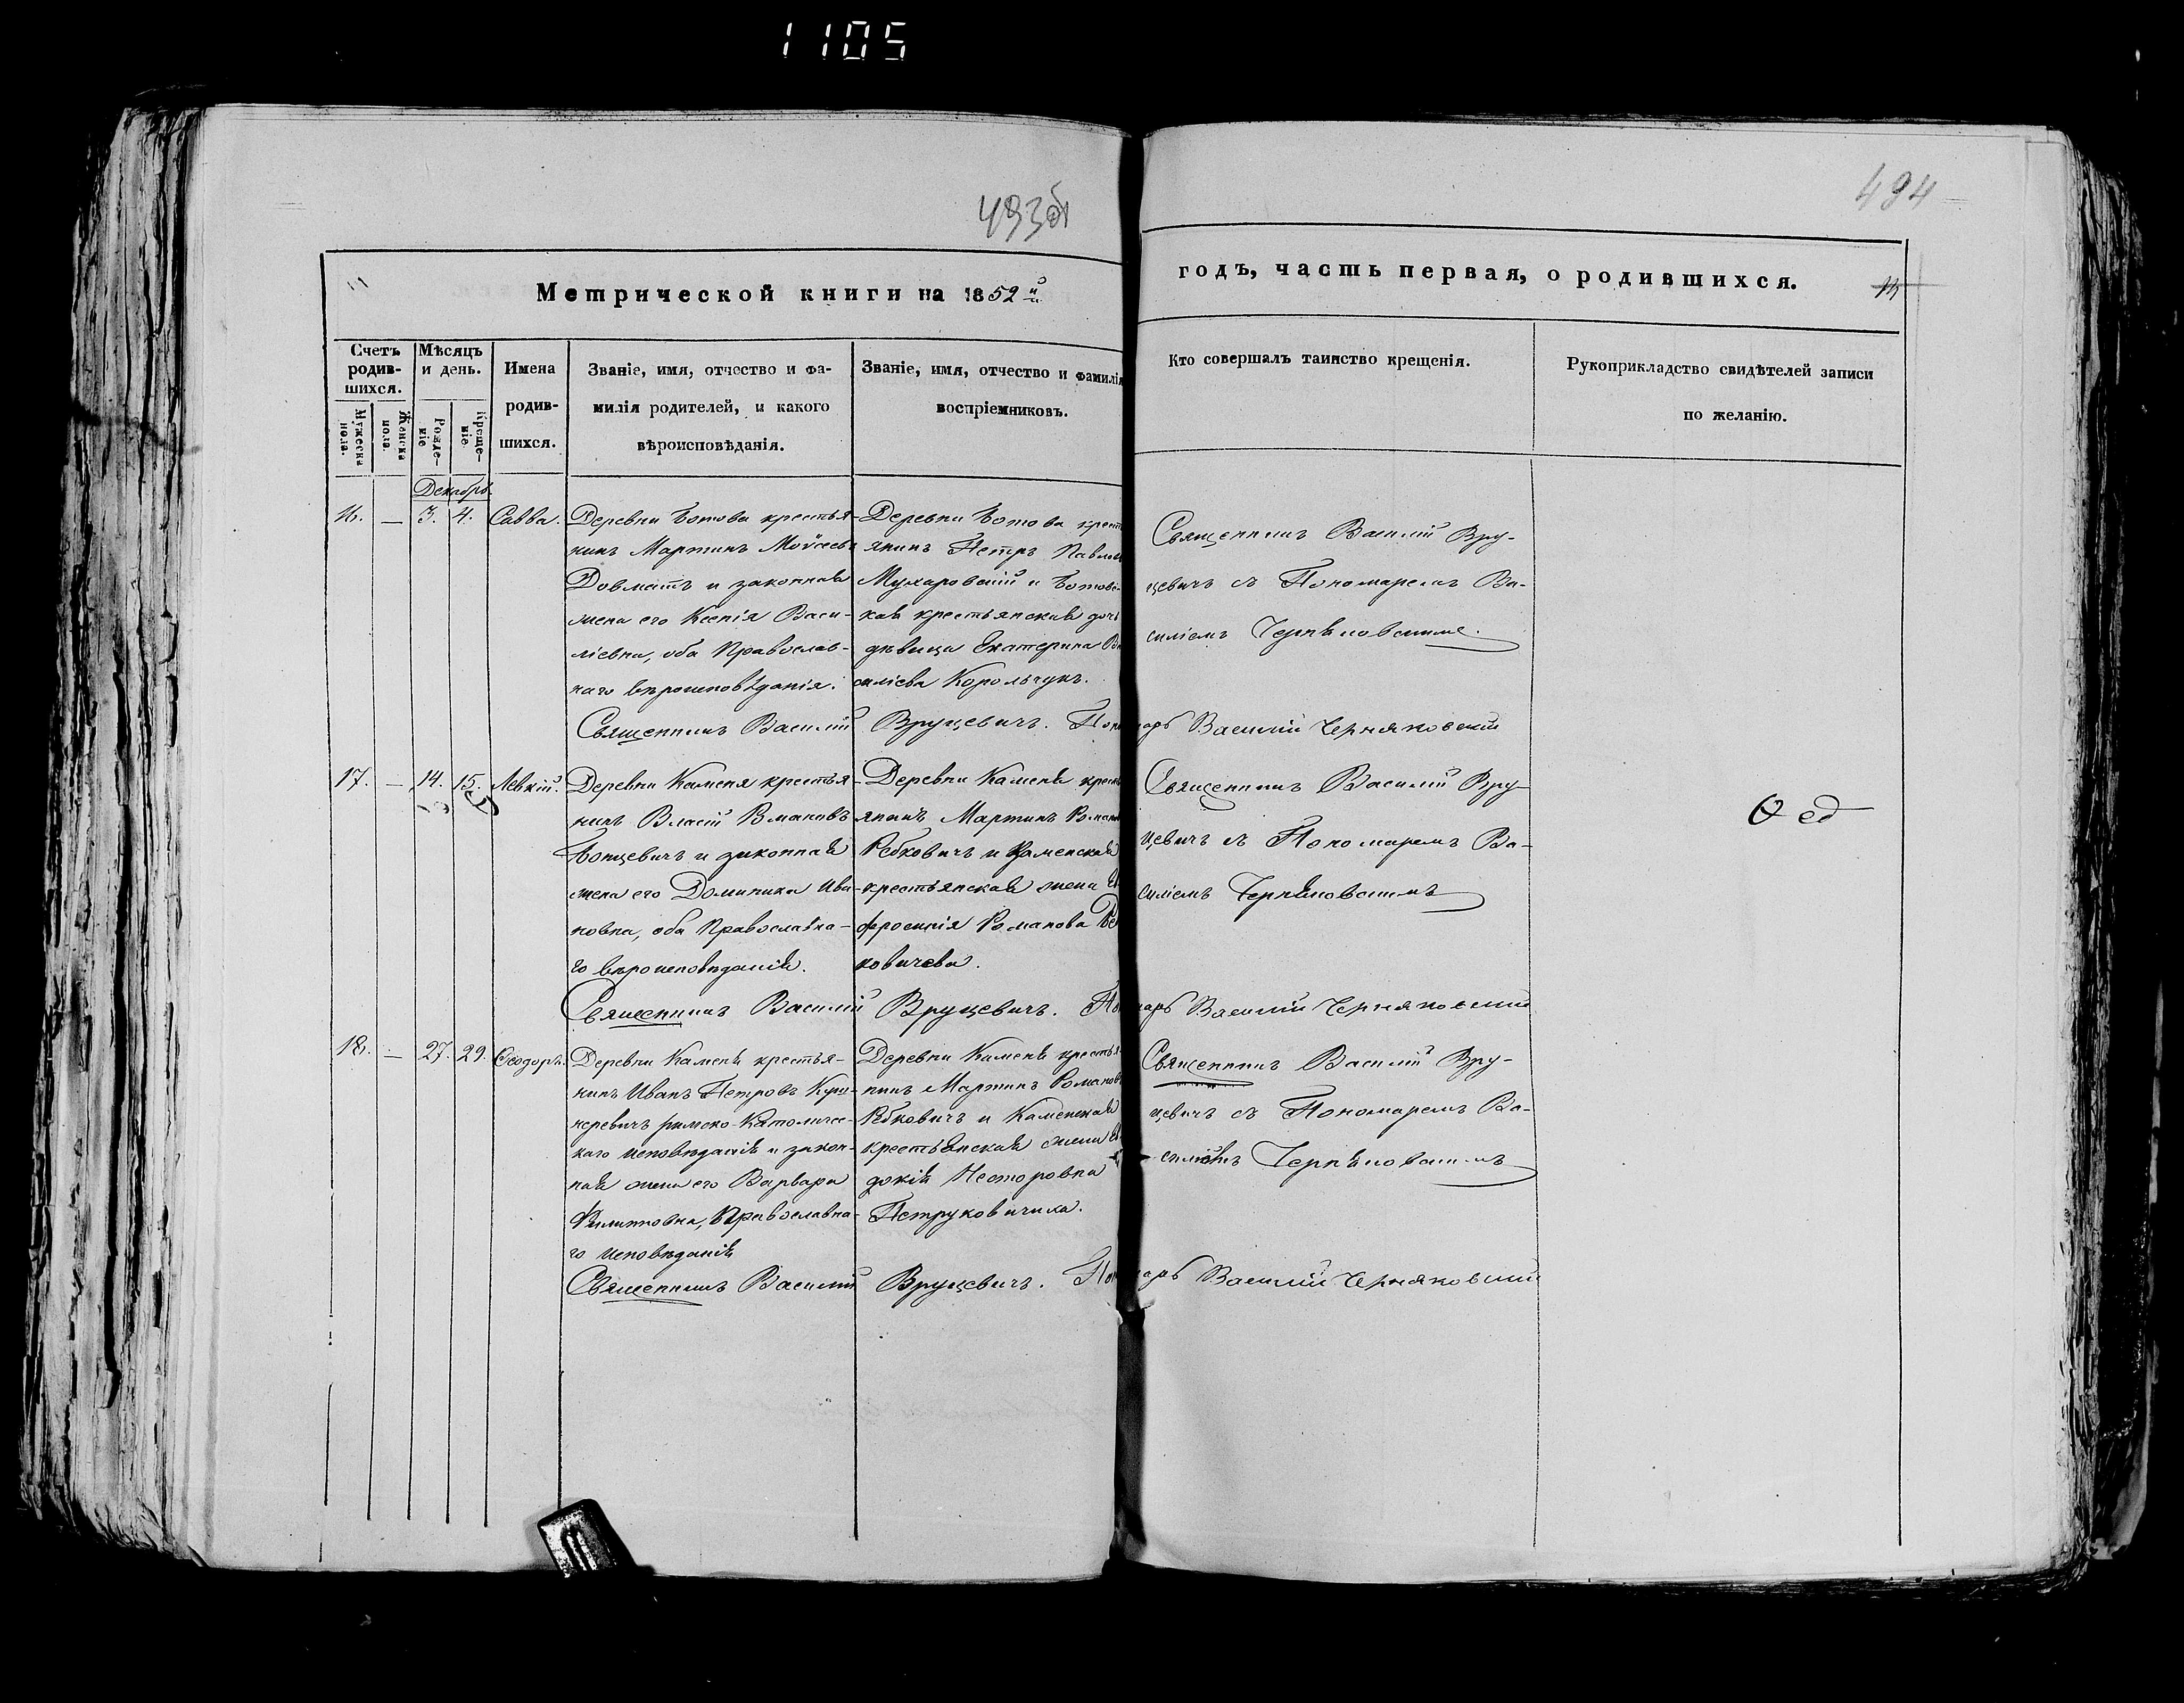 1105
493об
494
Метрической книги на 1852й
годъ, часть первая, о родившихся.
Счетъ родив-шихся.
Мужеска пола.
Женска пола.
Мѣсяцъ и день.
Рожде-ніе
Креще-ніе.
Имена родив-шихся.
Званіе, имя, отчество и фа-
милія родителей, и какого
вѣроисповѣданія.
Званіе, имя, отчество и фамилія
воспріемниковъ.
Кто совершалъ таинство крещенія.
Рукоприкладство свидѣтелей записи
по желанію.
Декабрь
16. — 3. 4. Савва.
Деревни Ботова крестья-
нинъ Мартинъ Моѵсеевъ
Довматъ и законная
жена его Ксенія Васи-
ліевна, оба Православ-
наго вѣроисповѣданія.
Деревни Ботова крест
янинъ Петръ Павлов
Мухаровскій и Ботовс-
кая крестьянская дочь
дѣвица Екатерина Ва
силіева Корольчукъ.
Священникъ Василій Вру-
цевичъ съ Пономаремъ Ва-
силіемъ Черняковскимъ.
Священникъ Василій Вруцевичъ. Пономарь Василій Черняковскій
17. — 14. 15. Левкій.
Деревни Каменя крестья-
нинъ Власій
и законная
жена его Доминика Ива-
новна, оба Православна-
го вѣроисповѣданія.
Деревни Каменя крест
янинъ Мартинъ Роман
Ребковичъ и Каменская
крестьянская жена Ев
фросинія Романова
ковичева.
Священникъ Василій Вру-
цевичъ съ Пономаремъ Ва-
силіемъ Черняковскимъ
Священникъ Василій Вруцевичъ. Пономарь Василій Черняковскій
18. — 27. 29. Ѳеодоръ.
Деревни Каменя крестья-
нинъ Иванъ Петровъ Куш-
неревичъ римско-Католичес-
каго исповѣданія и закон-
ная жена его Варвара
Филиповна, Православна-
го исповѣданія
Деревни Каменя крестья-
нинъ Мартинъ Романовъ
Ребковичъ и Каменская
крестьянская жена Ев
докія Несторовна
Петруковичиха.
Священникъ Василій Вру-
цевичъ съ Пономаремъ Ва-
силіемъ Черняковскимъ
Священникъ Василій Вруцевичъ. Пономарь Василій Черняковскій